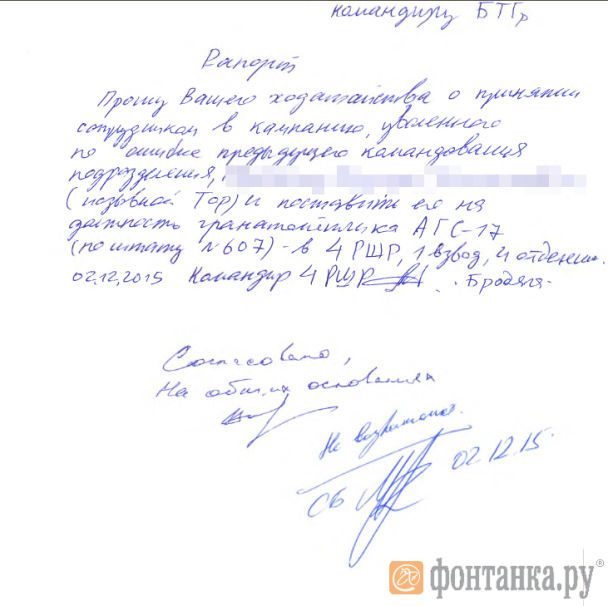 командиру БТГр
Рапорт
Прошу Вашего ходатайства о принятии
сотрудником в кампанию, уволенного
по ошибке предыдущего командования
подразделения,
(позывной Тор) и поставить его на
должность гранатометчика АГС-17
(по штату №607) - в 4 РШР, 1 взвод, 4 отделение.
02.12.2015 Командир 4 РШР . Бродяга.
Согласовано,
На общих основаниях
Не возражаю.
СБ 02.12.15.
фонтанка.ру